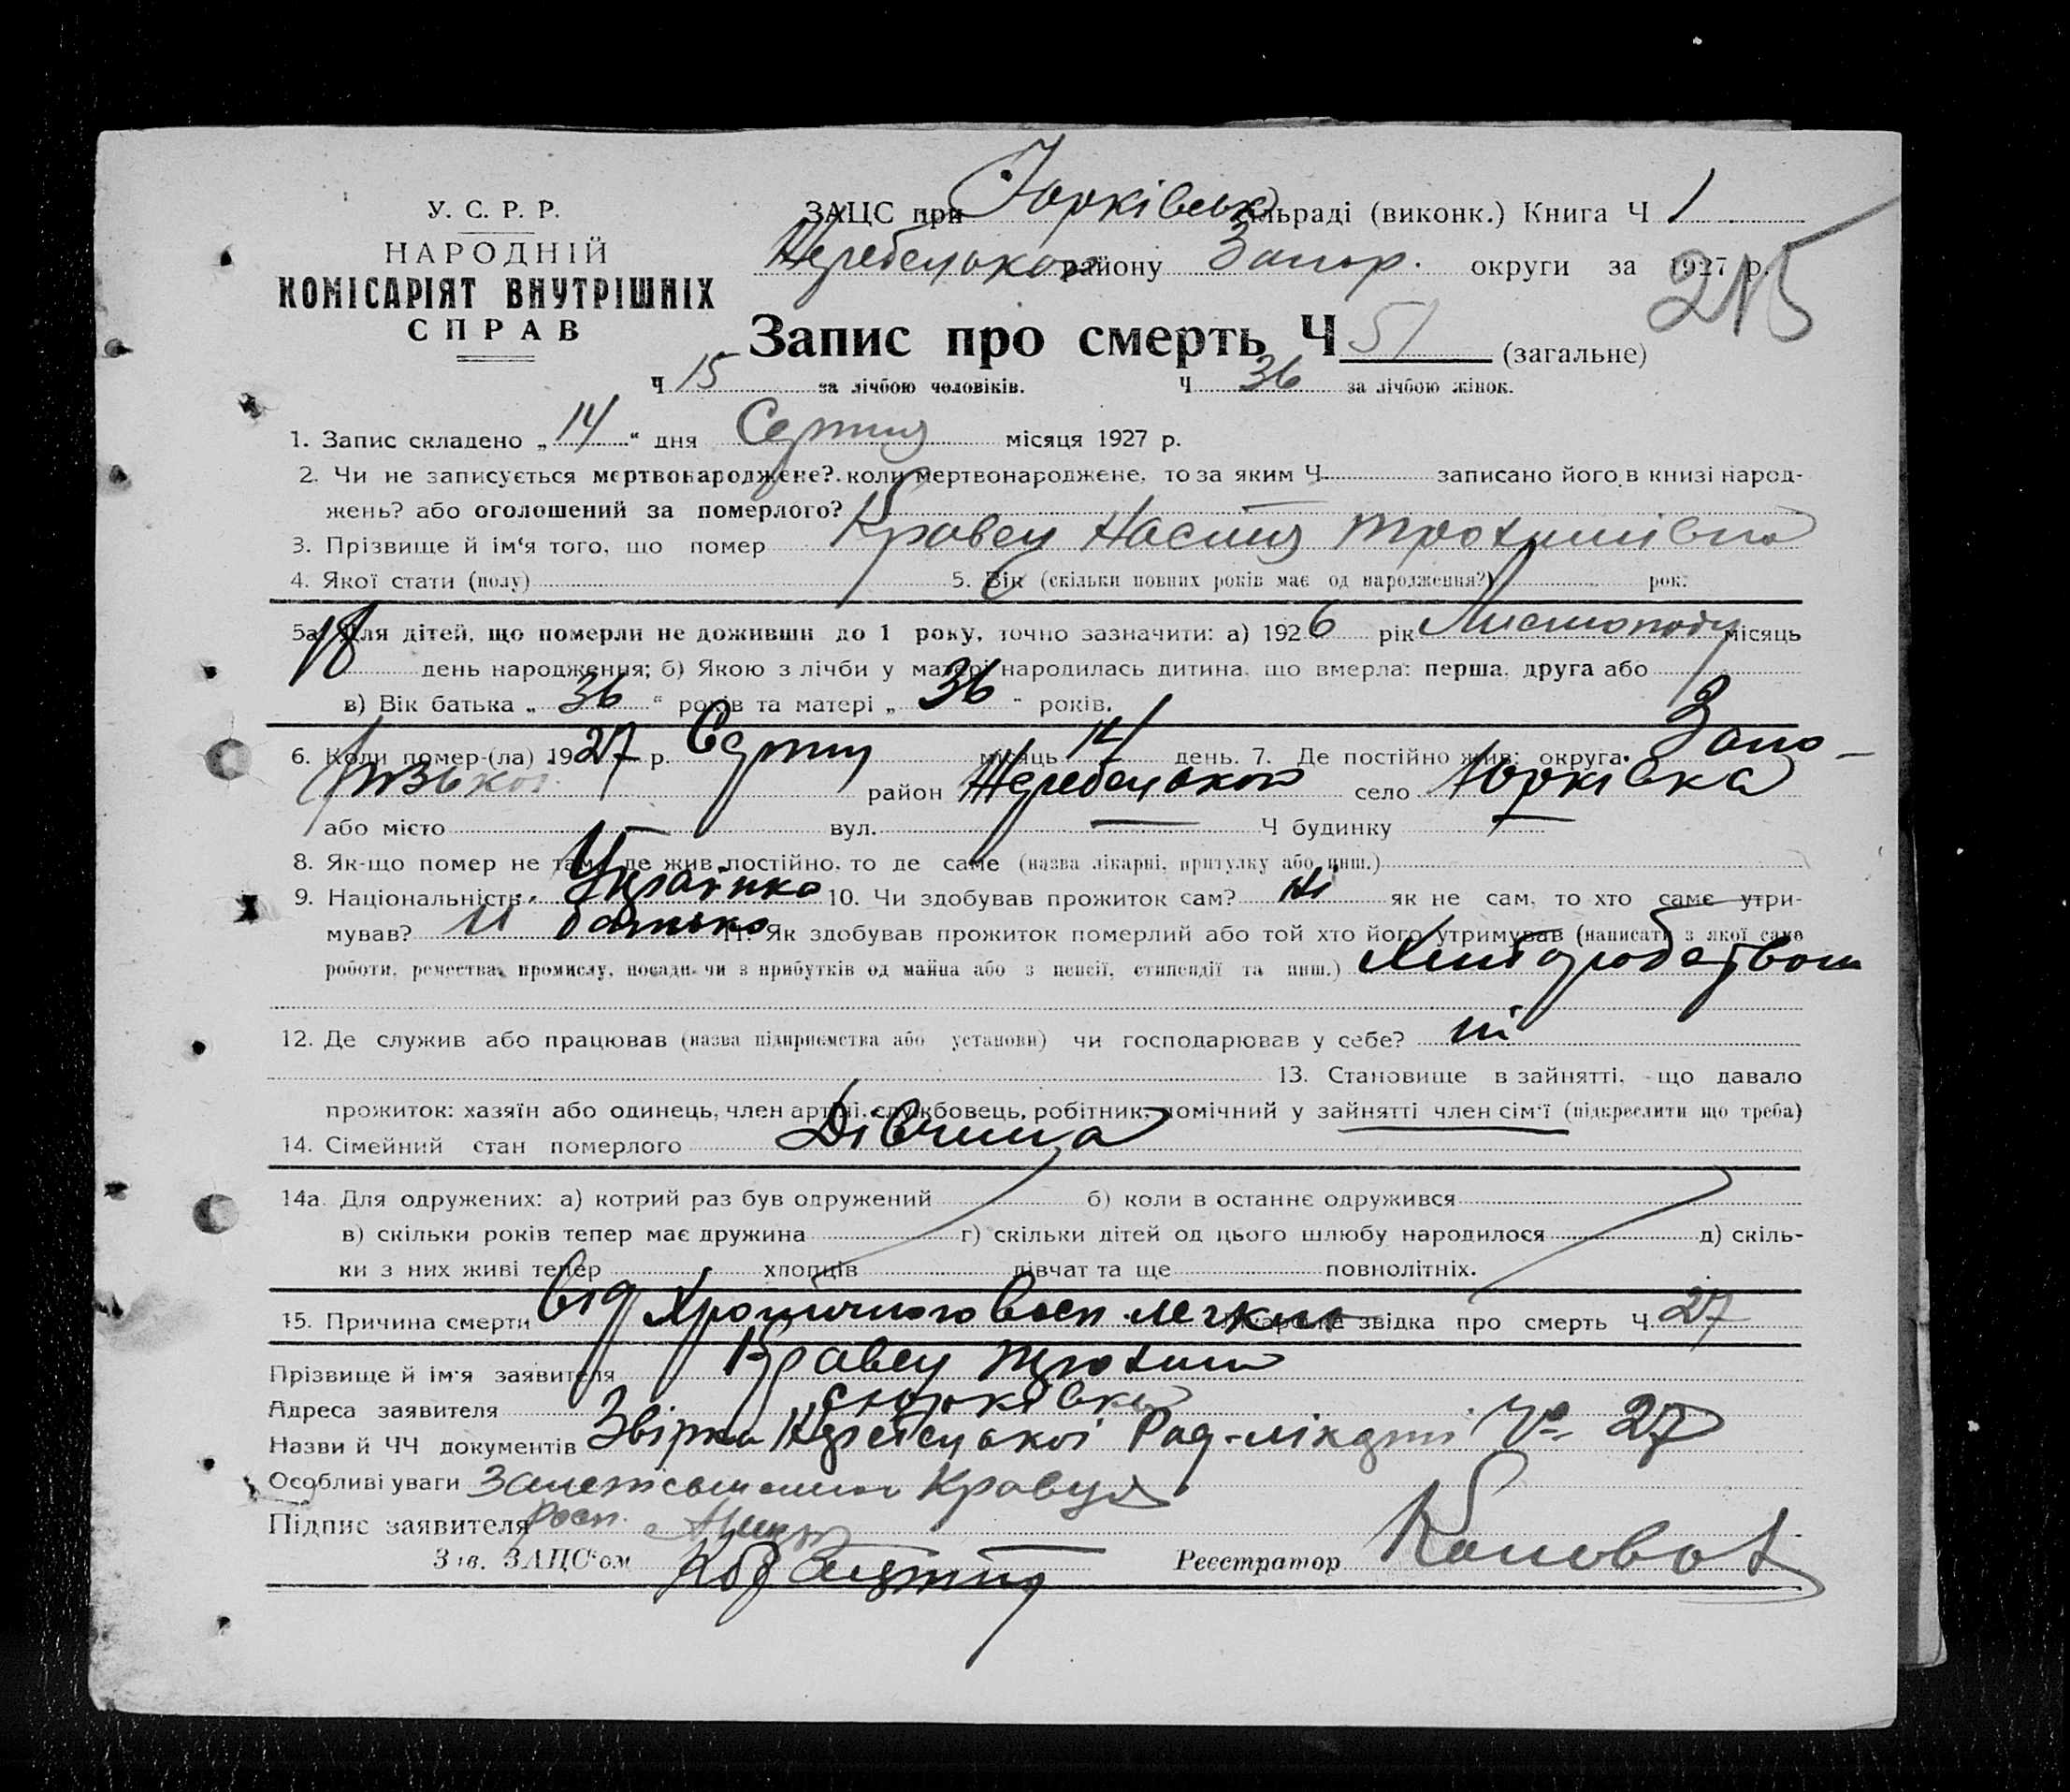 У. С. Р. Р.
НАРОДНІЙ
КОМІСАРІЯТ ВНУТРІШНІХ
СПРАВ
ЗАЦС при Юрківськ сільраді (виконк.) Книга Ч 1
Жеребецького району Запор. округи за 1927 р.
215
Запис про смерть Ч 51 (загальне)
Ч 15 за лічбою чоловіків. Ч 36 за лічбою жінок.
1. Запис складено „14“ дня Серпня місяця 1927 р.
2. Чи не записується мертвонароджене? коли мертвонароджене, то за яким Ч записано його в книзі народ-
жень? або оголошений за померлого?
3. Прізвище й ім‘я того, що помер Кравец Настя Трохимівна
4. Якої стати (полу) 5. Вік (скільки повних років має од народження?) рок.
5а. Для дітей, що померли не доживши до 1 року, точно зазначити: а) 1926 рік Листопаду місяць
18 день народження; б) Якою з лічби у матері народилась дитина, що вмерла: перша, друга або
в) Вік батька „36“ років та матері „36“ років.
6. Коли помер-(ла) 1927 р. Серпня місяць 14 день. 7. Де постійно жив: округа Запо-
різької район Жеребецького село Юрківка
або місто вул. — Ч будинку —
8. Як-що помер не там, де жив постійно, то де саме (назва лікарні, притулку або инш.)
9. Національність Українка 10. Чи здобував прожиток сам? Ні як не сам, то хто саме утри-
мував? батько 11. Як здобував прожиток померлий або той хто його утримував (написати з якої саме
роботи, ремества, промислу, посади чи з прибутків од майна або з пенсії, стипендії та инш.) Хліборобством
12. Де служив або працював (назва підприємства або установи) чи господарював у себе? ні
13. Становище в зайнятті, що давало
прожиток: хазяїн або одинець, член артілі, службовець, робітник, помічний у зайнятті член сім‘ї (підкреслити що треба)
14. Сімейний стан померлого Дівчина
14а. Для одружених: а) котрий раз був одружений б) коли в останнє одружився
в) скільки років тепер має дружина г) скільки дітей од цього шлюбу народилося д) скіль-
ки з них живі тепер хлопців дівчат та ще повнолітніх.
15. Причина смерти від Хронічного восп легких Лікарська звідка про смерть Ч 27
Прізвище й ім‘я заявителя Кравец Трохим
Адреса заявителя с Юрківка
Назви й ЧЧ документів Жеребецької № 27
Особливі уваги Кравця
Підпис заявителя
Зав. ЗАЦС‘ом Реєстратор